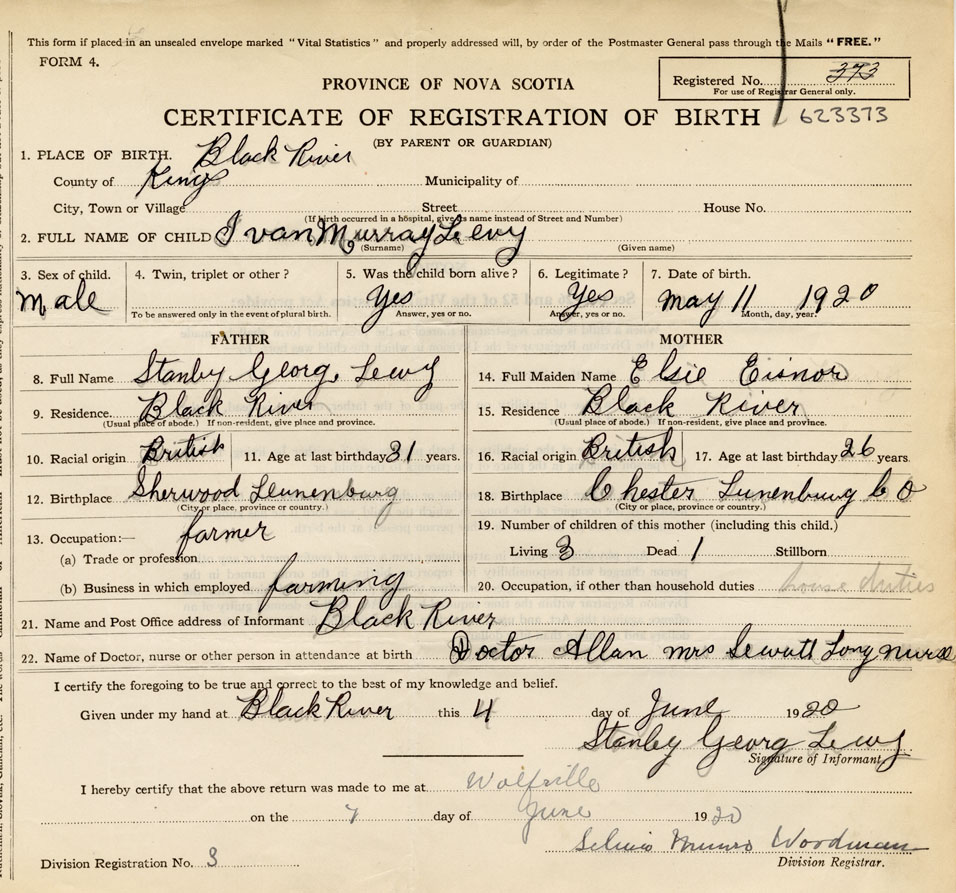 This form if placed in an unsealed envelope marked "Vital Statistics" and properly addressed will, by order of the Postmaster General pass through the Mails "FREE."
FORM 4.
PROVINCE OF NOVA SCOTIA
Registered No. 373
For use of Registrar General only.
CERTIFICATE OF REGISTRATION OF BIRTH 623373
(BY PARENT OR GUARDIAN)
1. PLACE OF BIRTH. Black River
County of Kings Municipality of
City, Town or Village Street House No.
(If birth occurred in a hospital, give its name instead of Street and Number)
2. FULL NAME OF CHILD Ivan Murray Levy
(Surname) (Given name)
3. Sex of child. 4. Twin, triplet or other? 5. Was the child born alive? 6. Legitimate? 7. Date of birth.
Male Yes Yes May 11 1920
To be answered only in the event of plural birth. Answer, yes or no. Answer, yes or no. Month, day, year.
FATHER MOTHER
8. Full Name Stanley Georg Levy 14. Full Maiden Name Elsie Eisnor
9. Residence. Black River 15. Residence Black River
(Usual place of abode.) If non-resident, give place and province. (Usual place of abode.) If non-resident, give place and province.
10. Racial origin British 11. Age at last birthday 31 years. 16. Racial origin British 17. Age at last birthday 26 years.
12. Birthplace Sherwood Leunenburg 18. Birthplace Chester Lunenburg Co
(City or place, province or country.) (City or place, province or country.)
13. Occupation:— farmer 19. Number of children of this mother (including this child.)
(a) Trade or profession Living 3 Dead 1 Stillborn
(b) Business in which employed farming 20. Occupation, if other than household duties house duties
21. Name and Post Office address of Informant Black River
22. Name of Doctor, nurse or other person in attendance at birth Doctor Allan mrs Long nurse
I certify the foregoing to be true and correct to the best of my knowledge and belief.
Given under my hand at Black River this 4 day of June 1920
Stanley Georg Levy
Signature of Informant.
I hereby certify that the above return was made to me at Wolfville
on the 7 day of June 1920
Munro Woodman
Division Registration No. 3 Division Registrar.